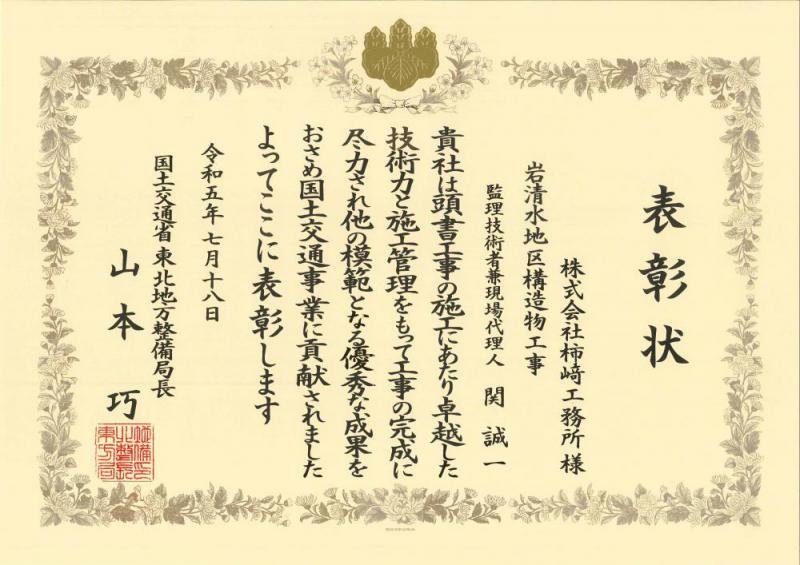 表彰状
株式会社柿﨑工務所様
岩清水地区構造物工事
監理技術者兼現場代理人 関誠一
貴社は頭書工事の施工にあたり卓越した
技術力と施工管理をもって工事の完成に
尽力され他の模範となる優秀な成果を
おさめ国土交通事業に貢献されました
よってここに表彰します
令和五年七月十八日
国土交通省東北地方整備局長
山本巧